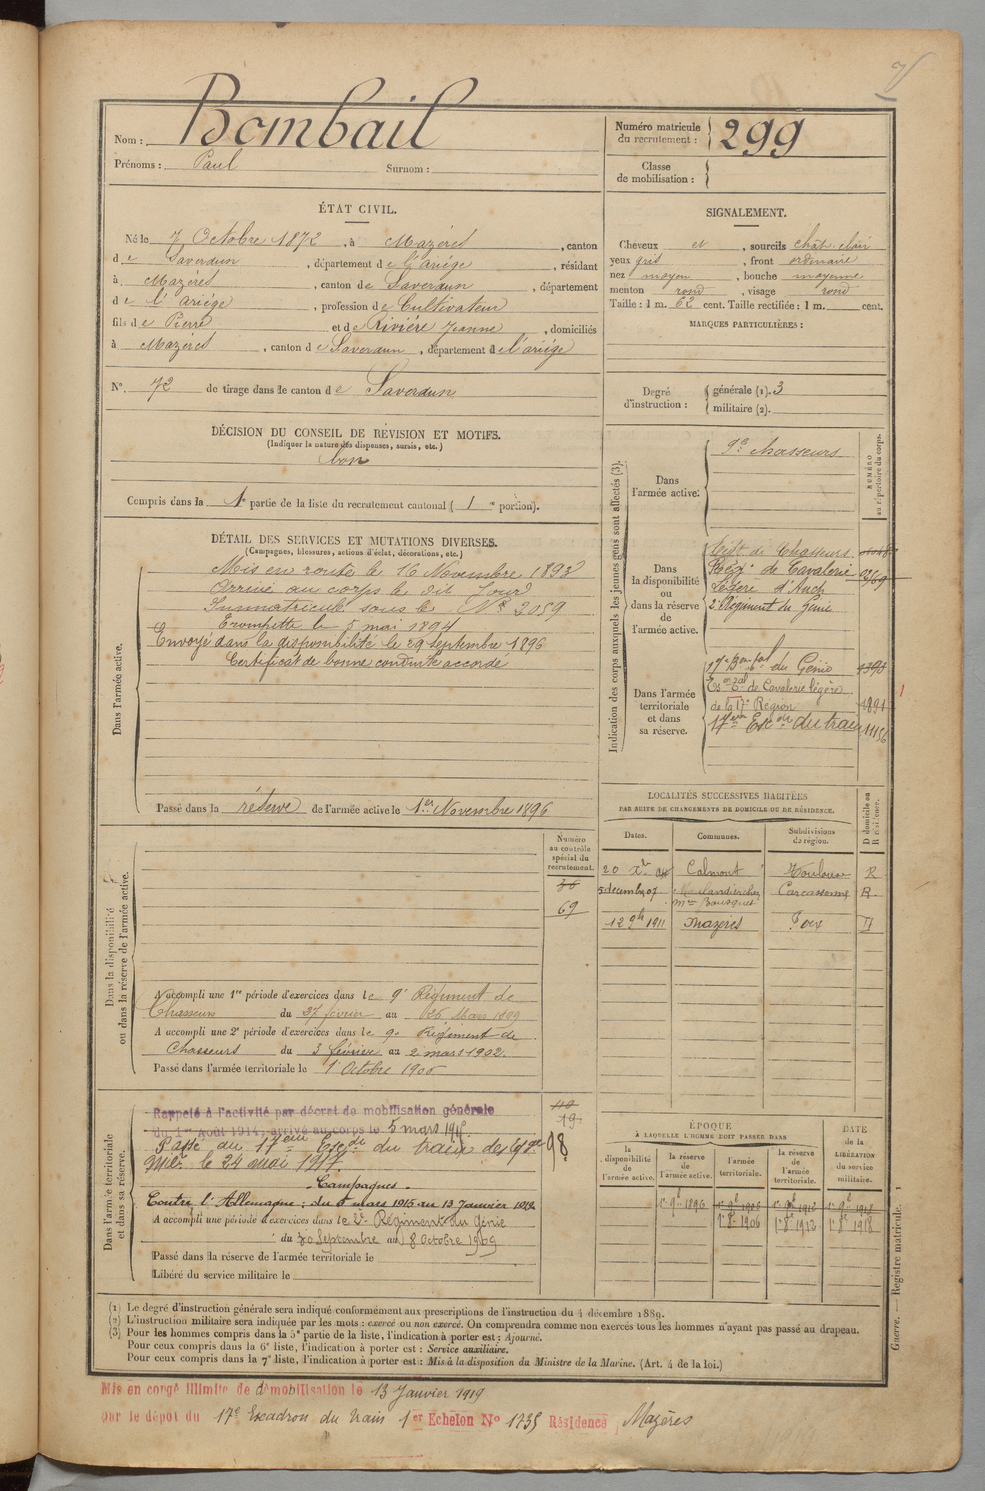 Nom : Bombail
Prénoms : Paul Surnom :
Numéro matricule du recrutement : 299
Classe de mobilisation :
ÉTAT CIVIL.
Né le 7 Octobre 1872, à Mazères, canton
de Saverdun, département de l'Ariège, résidant
à Mazères, canton de Saverdun, département
de l'Ariège, profession de Cultivateur
fils de Pierre et de Rivière Jeanne, domiciliés
à Mazères, canton de Saverdun, département de l'ariège
No. 72 de tirage dans le canton de Saverdun
SIGNALEMENT.
Cheveux et, sourcils chât. clair
yeux gris, front ordinaire
nez moyen, bouche moyenne
menton rond, visage rond
Taille : 1 m. 62 cent. Taille rectifiée : 1 m. cent.
MARQUES PARTICULIÈRES :
Degré d'instruction : générale (1). 3
militaire (2).
DÉCISION DU CONSEIL DE RÉVISION ET MOTIFS.
(Indiquer la nature des dispenses, sursis, etc.)
bon
Compris dans la 1e partie de la liste du recrutement cantonal (1re portion).
DÉTAIL DES SERVICES ET MUTATIONS DIVERSES.
(Campagnes, blessures, actions d'éclat, décorations, etc.)
Dans l'armée active.
Mis en route le 16 Novembre 1893
Arrivé au corps le dit Jour
Immatriculé sous le No 2059
Trompette le 5 mai 1894
Envoyé dans la disponibilité le 29 septembre 1896
Certificat de bonne conduite accordé
Passé dans la réserve de l'armée active le 1er Novembre 1896
Indication des corps auxquels les jeunes gens sont affectés (3).
NUMÉRO au répertoire du corps.
Dans l'armée active.
9e Chasseurs
Dans la disponibilité ou dans la réserve de l'armée active.
Régt de Chasseurs
Rég. de Cavalerie
Légère d'Auch
2e Régiment du Génie
Dans l'armée territoriale et dans sa réserve.
17e Bon tal du Génie
Eson Tal de Cavalerie légère
de la 17e Région 1891
17ème Esc on du train 11156
LOCALITÉS SUCCESSIVES HABITÉES
PAR SUITE DE CHANGEMENTS DE DOMICILE OU DE RÉSIDENCE.
Dates. Communes. Subdivisions de région. D domicile ou R résidence.
20 Xbre 04 Calmont Toulouse R
5 décembre 07 Carcassonne R
Mon Bousquet
12 9bre 1911 Mazères Foix D
Numéro au contrôle spécial du recrutement.
36
69
Dans la disponibilité ou dans la réserve de l'armée active.
A accompli une 1re période d'exercices dans le 9e Régiment de
Chasseurs du 27 février au 26 Mars 1899
A accompli une 2e période d'exercices dans le 9e Régiment de
Chasseurs du 3 février au 2 mars 1902.
Passé dans l'armée territoriale le 1 Octobre 1906
Dans l'armée territoriale et dans sa réserve.
Rappelé à l'activité par décret de mobilisation générale
du 1er Août 1914, arrivé au corps le 5 mars 1915
19
98
Passé au 17ème Esc du train des éq. ges
Milres le 24 août 1917.
Campagnes.
Contre l'Allemagne : du 5 mars 1915 au 13 Janvier 1919
A accompli une période d'exercices dans le 2e Régiment du Génie
du 30 Septembre au 8 Octobre 1909
Passé dans la réserve de l'armée territoriale le
Libéré du service militaire le
ÉPOQUE
À LAQUELLE L'HOMME DOIT PASSER DANS
la disponibilité de l'armée active.
la réserve de l'armée active.
l'armée territoriale.
la réserve de l'armée territoriale.
DATE de la LIBÉRATION du service militaire.
1er 9bre 1896
1er 8bre 1906 1er 8bre 1912 1er 8bre 1918
(1) Le degré d'instruction générale sera indiqué conformément aux prescriptions de l'instruction du 4 décembre 1889.
(2) L'instruction militaire sera indiquée par les mots : exercé ou non exercé. On comprendra comme non exercés tous les hommes n'ayant pas passé au drapeau.
(3) Pour les hommes compris dans la 5e partie de la liste, l'indication à porter est : Ajourné.
Pour ceux compris dans la 6e liste, l'indication à porter est : Service auxiliaire.
Pour ceux compris dans la 7e liste, l'indication à porter est : Mis à la disposition du Ministre de la Marine. (Art. 4 de la loi.)
Guerre. — Registre matricule. 1
Mis en congé illimité de démobilisation le 13 Janvier 1919
par le dépôt du 17e Escadron du Train 1er Echelon No 1735 Résidence Mazères